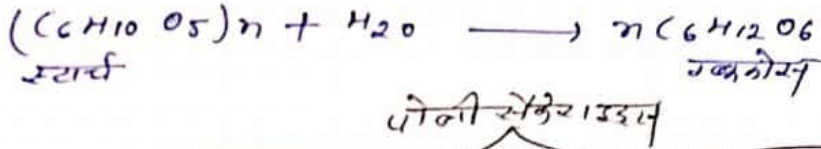 (C6H10 O5)n + H2O ⟶ n C6H12O6
स्टार्च ग्लूकोस
पोली सैकेराइडस